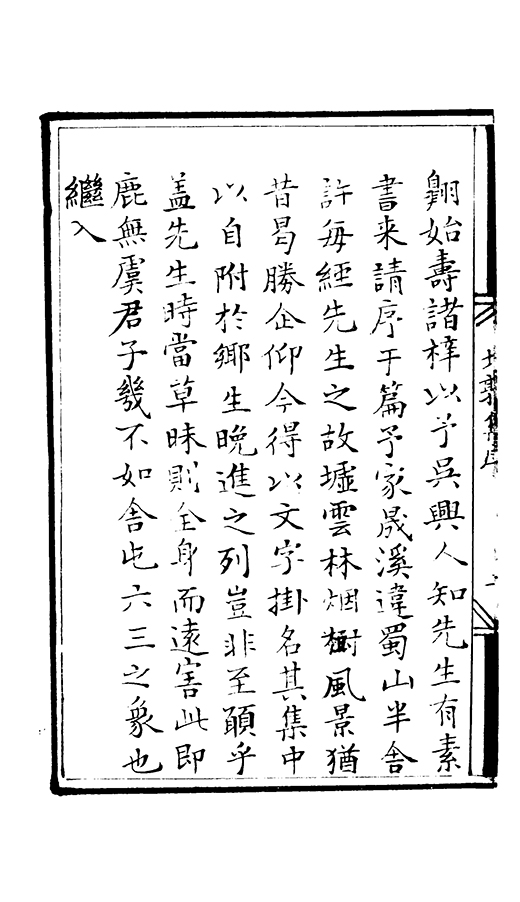 翺始壽諸梓以予吳興人知先生有素
書来請序于篇予家晟溪違蜀山半舍
許每經先生之故墟雲林烟樹風景猶
昔曷勝企仰今得以文字掛名其集中
以自附於鄉生晚進之列豈非至願乎
盖先生時當草昧則全身而遠害此即
鹿無虞君子幾不如舍屯六三之象也
繼入